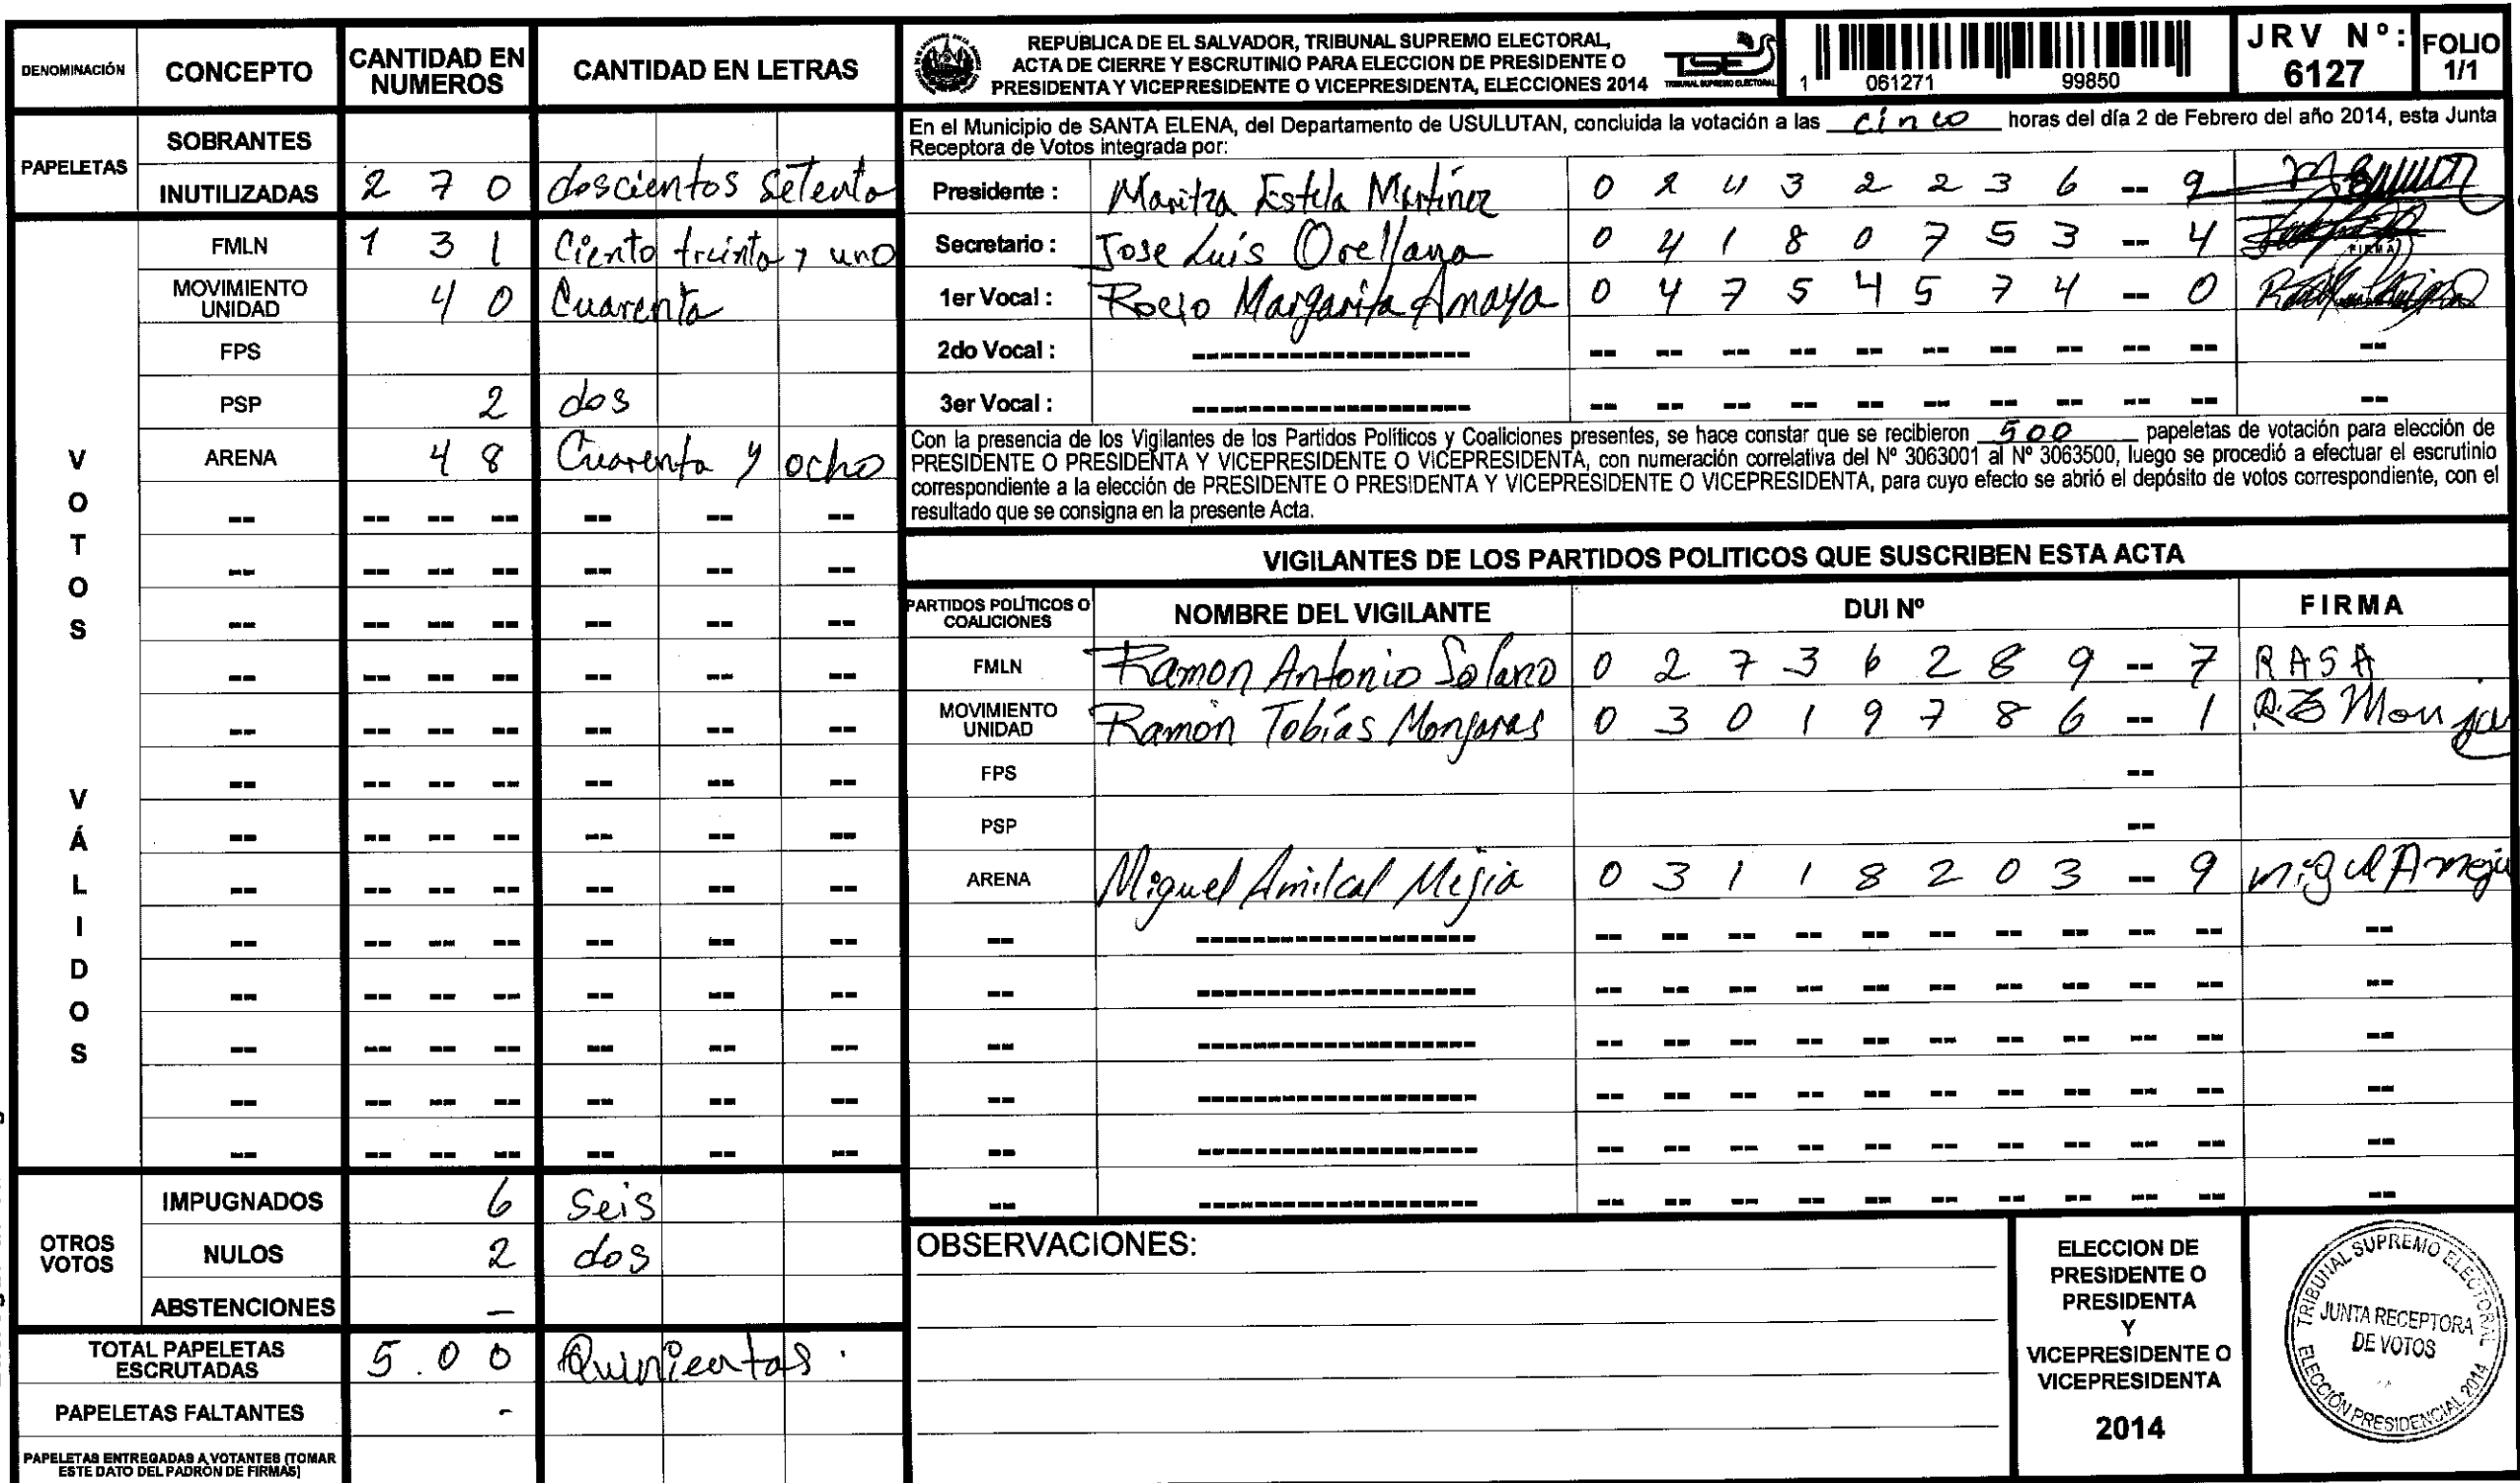 DENOMINACIÓN CONCEPTO CANTIDAD EN NUMEROS CANTIDAD EN LETRAS
PAPELETAS
SOBRANTES
INUTILIZADAS 2 7 0 doscientos setenta
VOTOS VÁLIDOS
FMLN 1 3 1 Ciento treinta y uno
MOVIMIENTO UNIDAD 4 0 Cuarenta
FPS
PSP 2 dos
ARENA 4 8 Cuarenta y ocho
OTROS VOTOS
IMPUGNADOS 6 Seis
NULOS 2 dos
ABSTENCIONES –
TOTAL PAPELETAS ESCRUTADAS 5.0 0 Quinientas.
PAPELETAS FALTANTES -
PAPELETAS ENTREGADAS A VOTANTES (TOMAR ESTE DATO DEL PADRÓN DE FIRMAS)
REPUBLICA DE EL SALVADOR, TRIBUNAL SUPREMO ELECTORAL,
ACTA DE CIERRE Y ESCRUTINIO PARA ELECCION DE PRESIDENTE O
PRESIDENTA Y VICEPRESIDENTE O VICEPRESIDENTA, ELECCIONES 2014
TSE
TRIBUNAL SUPREMO ELECTORAL
1 061271 99850
JRV Nº: 6127
FOLIO 1/1
En el Municipio de SANTA ELENA, del Departamento de USULUTAN, concluida la votación a las cinco horas del día 2 de Febrero del año 2014, esta Junta
Receptora de Votos integrada por:
Presidente : Maritza Estela Martínez 0 2 4 3 2 2 3 6 -- 9
Secretario : Jose Luis Orellana 0 4 1 8 0 7 5 3 -- 4
1er Vocal : Rocio Margarita Amaya 0 4 7 5 4 5 7 4 -- 0
2do Vocal :
3er Vocal :
Con la presencia de los Vigilantes de los Partidos Políticos y Coaliciones presentes, se hace constar que se recibieron 500 papeletas de votación para elección de
PRESIDENTE O PRESIDENTA Y VICEPRESIDENTE O VICEPRESIDENTA, con numeración correlativa del Nº 3063001 al Nº 3063500, luego se procedió a efectuar el escrutinio
correspondiente a la elección de PRESIDENTE O PRESIDENTA Y VICEPRESIDENTE O VICEPRESIDENTA, para cuyo efecto se abrió el depósito de votos correspondiente, con el
resultado que se consigna en la presente Acta.
VIGILANTES DE LOS PARTIDOS POLITICOS QUE SUSCRIBEN ESTA ACTA
PARTIDOS POLÍTICOS O COALICIONES NOMBRE DEL VIGILANTE DUI Nº FIRMA
FMLN Ramon Antonio Solano 0 2 7 3 6 2 8 9 -- 7 RASA
MOVIMIENTO UNIDAD Ramón Tobías Monjaras 0 3 0 1 9 7 8 6 -- 1
FPS --
PSP --
ARENA Miguel Amilcal Mejia 0 3 1 1 8 2 0 3 -- 9
OBSERVACIONES:
ELECCION DE
PRESIDENTE O
PRESIDENTA
Y
VICEPRESIDENTE O
VICEPRESIDENTA
2014
TRIBUNAL SUPREMO ELECTORAL
JUNTA RECEPTORA
DE VOTOS
ELECCIÓN PRESIDENCIAL 2014